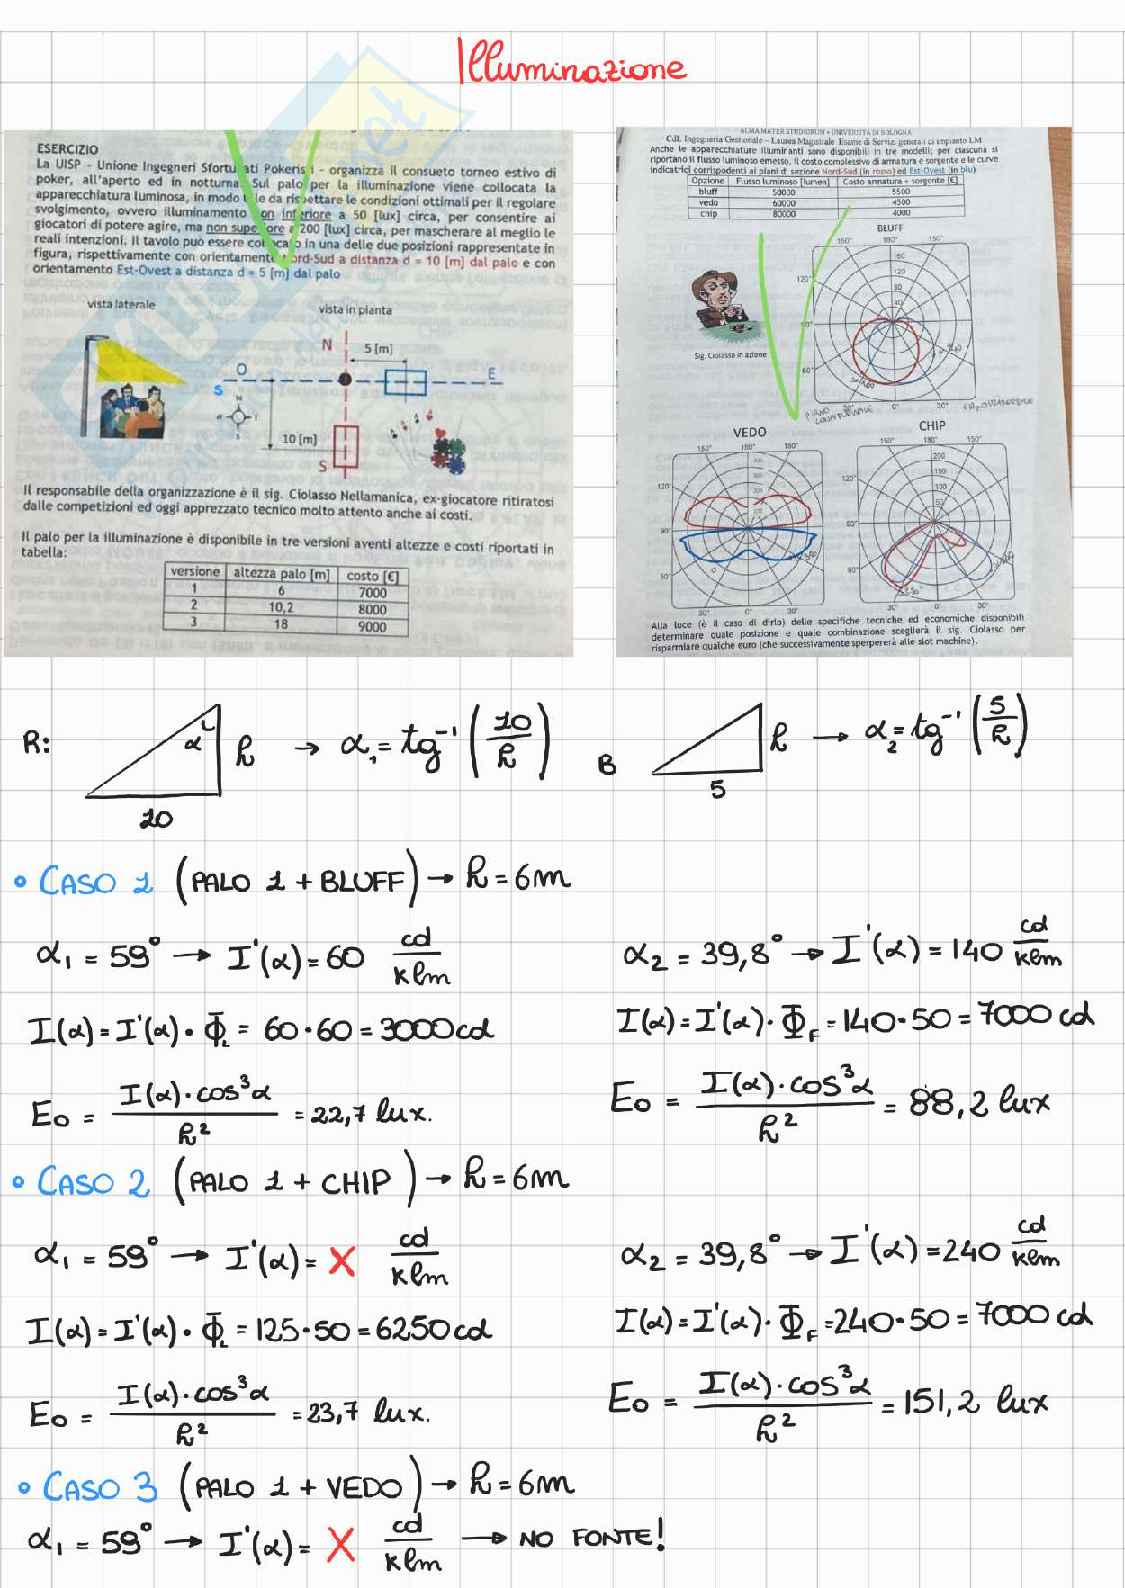 Illuminazione
ESERCIZIO
La UISP - Unione Ingegneri Sfortunati Pokeristi - organizza il consueto torneo estivo di
poker, all'aperto ed in notturna. Sul palo per la illuminazione viene collocata la
apparecchiatura luminosa, in modo tale da rispettare le condizioni ottimali per il regolare
svolgimento, ovvero illuminamento non inferiore a 50 [lux] circa, per consentire ai
giocatori di potere agire, ma non superiore a 200 [lux] circa, per mascherare al meglio le
reali intenzioni. Il tavolo può essere collocato in una delle due posizioni rappresentate in
figura, rispettivamente con orientamento Nord-Sud a distanza d = 10 [m] dal palo e con
orientamento Est-Ovest a distanza d = 5 [m] dal palo
vista laterale
vista in pianta
N
5 [m]
O
E
S
10 [m]
S
Il responsabile della organizzazione è il sig. Ciolasso Nellamanica, ex-giocatore ritiratosi
dalle competizioni ed oggi apprezzato tecnico molto attento anche ai costi.
Il palo per la illuminazione è disponibile in tre versioni aventi altezze e costi riportati in
tabella:
versione altezza palo [m] costo [€]
1 6 7000
2 10,2 8000
3 18 9000
ALMA MATER STUDIORUM - UNIVERSITÀ DI BOLOGNA
CdL Ingegneria Gestionale - Laurea Magistrale Esame di Servizi generali di impianto LM
Anche le apparecchiature illuminanti sono disponibili in tre modelli; per ciascuna si
riportano il flusso luminoso emesso, il costo complessivo di armatura e sorgente e le curve
indicatrici corrispondenti ai piani di sezione Nord-Sud (in rosso) ed Est-Ovest (in blu)
Opzione Flusso luminoso [lumen] Costo armatura + sorgente [€]
bluff 50000 5500
vedo 60000 4500
chip 80000 4000
BLUFF
150° 180° 150°
120°
90°
60°
30° 0° 30°
Sig. Ciolasso in azione
PIANO
LONGITUDINALE
VEDO
150° 180° 150°
120°
90°
30° 0° 30°
CHIP
150° 180° 150°
120°
200
150
100
50
30° 0° 30°
Alla luce (è il caso di dirlo) delle specifiche tecniche ed economiche disponibili
determinare quale posizione e quale combinazione sceglierà il sig. Ciolasso per
risparmiare qualche euro (che successivamente sperpererà alle slot machine).
R: α h → α₁ = tg⁻¹ (10/h)
10
B h → α₂ = tg⁻¹ (5/h)
5
• CASO 1 (PALO 1 + BLUFF) → h = 6m
α₁ = 59° → I'(α) = 60 cd/klm
α₂ = 39,8° → I'(α) = 140 cd/klm
I(α) = I'(α) · Φ_L = 60·60 = 3000 cd
I(α) = I'(α) · Φ_F = 140·50 = 7000 cd
E₀ = I(α)·cos³α / h² = 22,7 lux.
E₀ = I(α)·cos³α / h² = 88,2 lux
• CASO 2 (PALO 1 + CHIP) → h = 6m
α₁ = 59° → I'(α) = X cd/klm
α₂ = 39,8° → I'(α) = 240 cd/klm
I(α) = I'(α) · Φ_L = 125·50 = 6250 cd
I(α) = I'(α) · Φ_F = 240·50 = 7000 cd
E₀ = I(α)·cos³α / h² = 23,7 lux.
E₀ = I(α)·cos³α / h² = 151,2 lux
• CASO 3 (PALO 1 + VEDO) → h = 6m
α₁ = 59° → I'(α) = X cd/klm → NO FONTE!